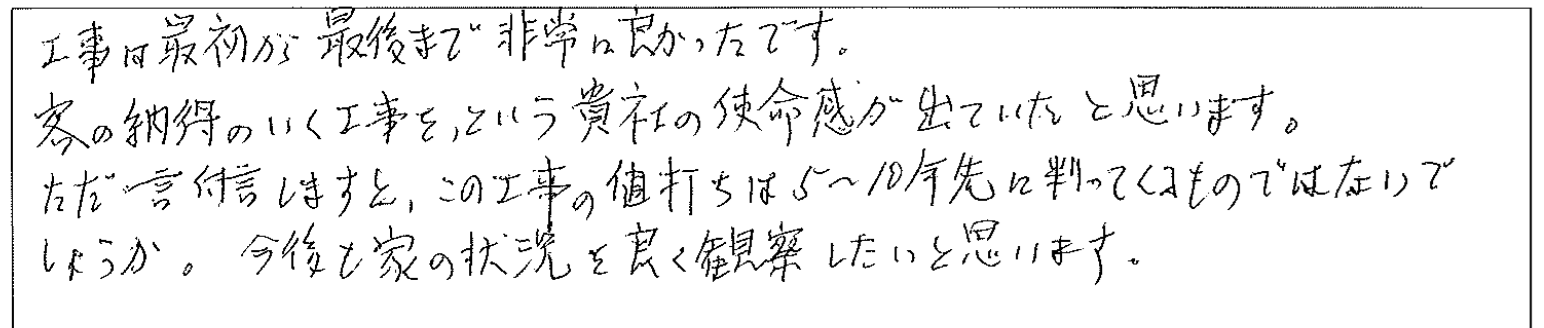 工事は最初から最後まで非常に良かったです。
客の納得のいく工事を、という貴社の使命感が出ていたと思います。
ただ一言付言しますと、この工事の値打ちは5〜10年先に判ってくるものではないで
しょうか。今後も家の状況を良く観察したいと思います。